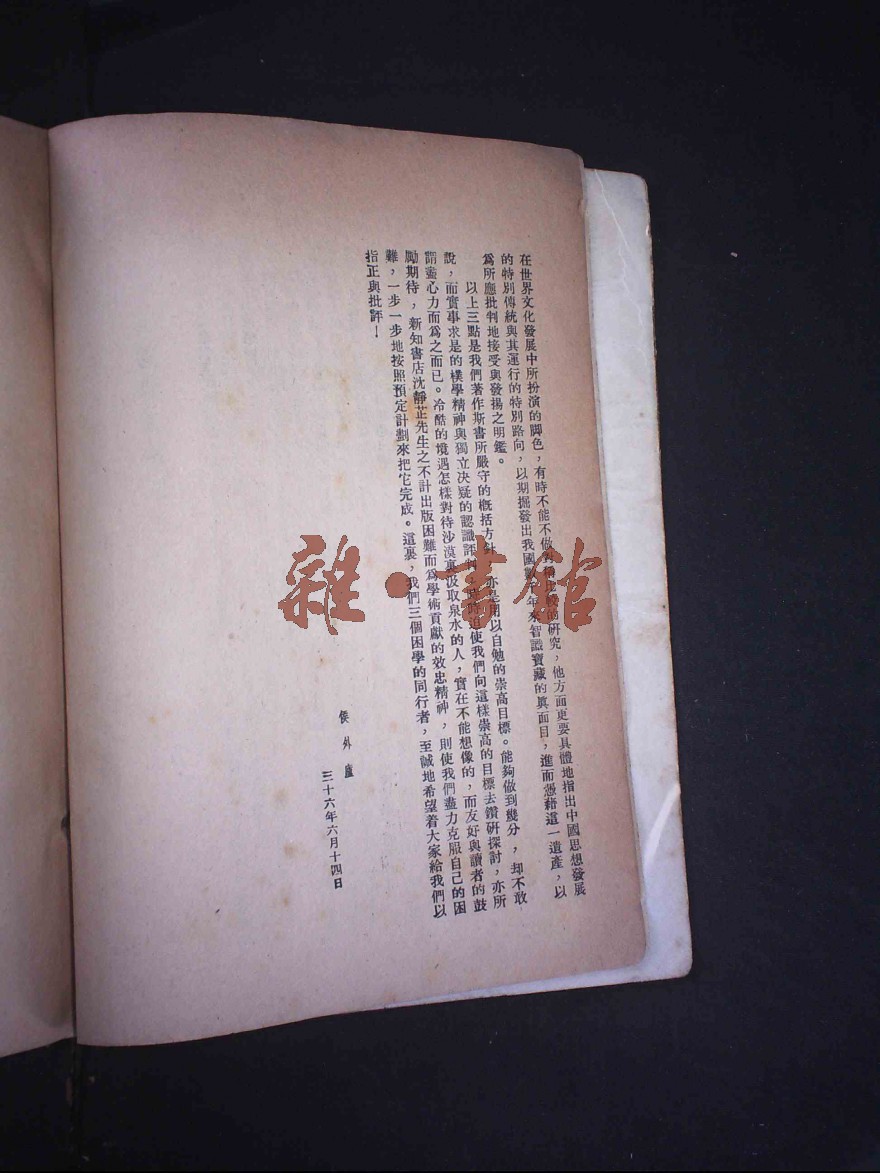 在世界文化發展中所扮演的脚色，有時不能不做對稱比較的研究，他方面更要具體地指出中國思想發展
的特別傳統與其運行的特別路向，以期掘發出我國數千年來智識寶藏的眞面目，進而憑藉這一遺產，以
爲所應批判地接受與發揚之明鑑。
以上三點是我們著作斯書所嚴守的槪括方針，亦是用以自勉的崇高目標。能夠做到幾分，却不敢
說，而實事求是的樸學精神與獨立决疑的認識評判，時時迫使我們向這樣崇高的目標去鑽研探討，亦所
謂盡心力而爲之而已。冷酷的境遇怎樣對待沙漠裏汲取泉水的人，實在不能想像的，而友好與讀者的鼓
勵期待，新知書店沈靜芷先生之不計出版困難而爲學術貢獻的效忠精神，則使我們盡力克服自己的困
難，一步一步地按照預定計劃來把它完成。這裏，我們三個困學的同行者，至誠地希望着大家給我們以
指正與批評！
侯外廬
三十六年六月十四日
雜·書館